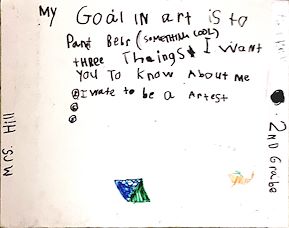 My Goal in art is to
Pant Bebr (SOMETHING COOL)
three Thaings I want
You To Know About Me
① I wate to be a Artest
②
③
Mrs. Hill
2ND Grabe